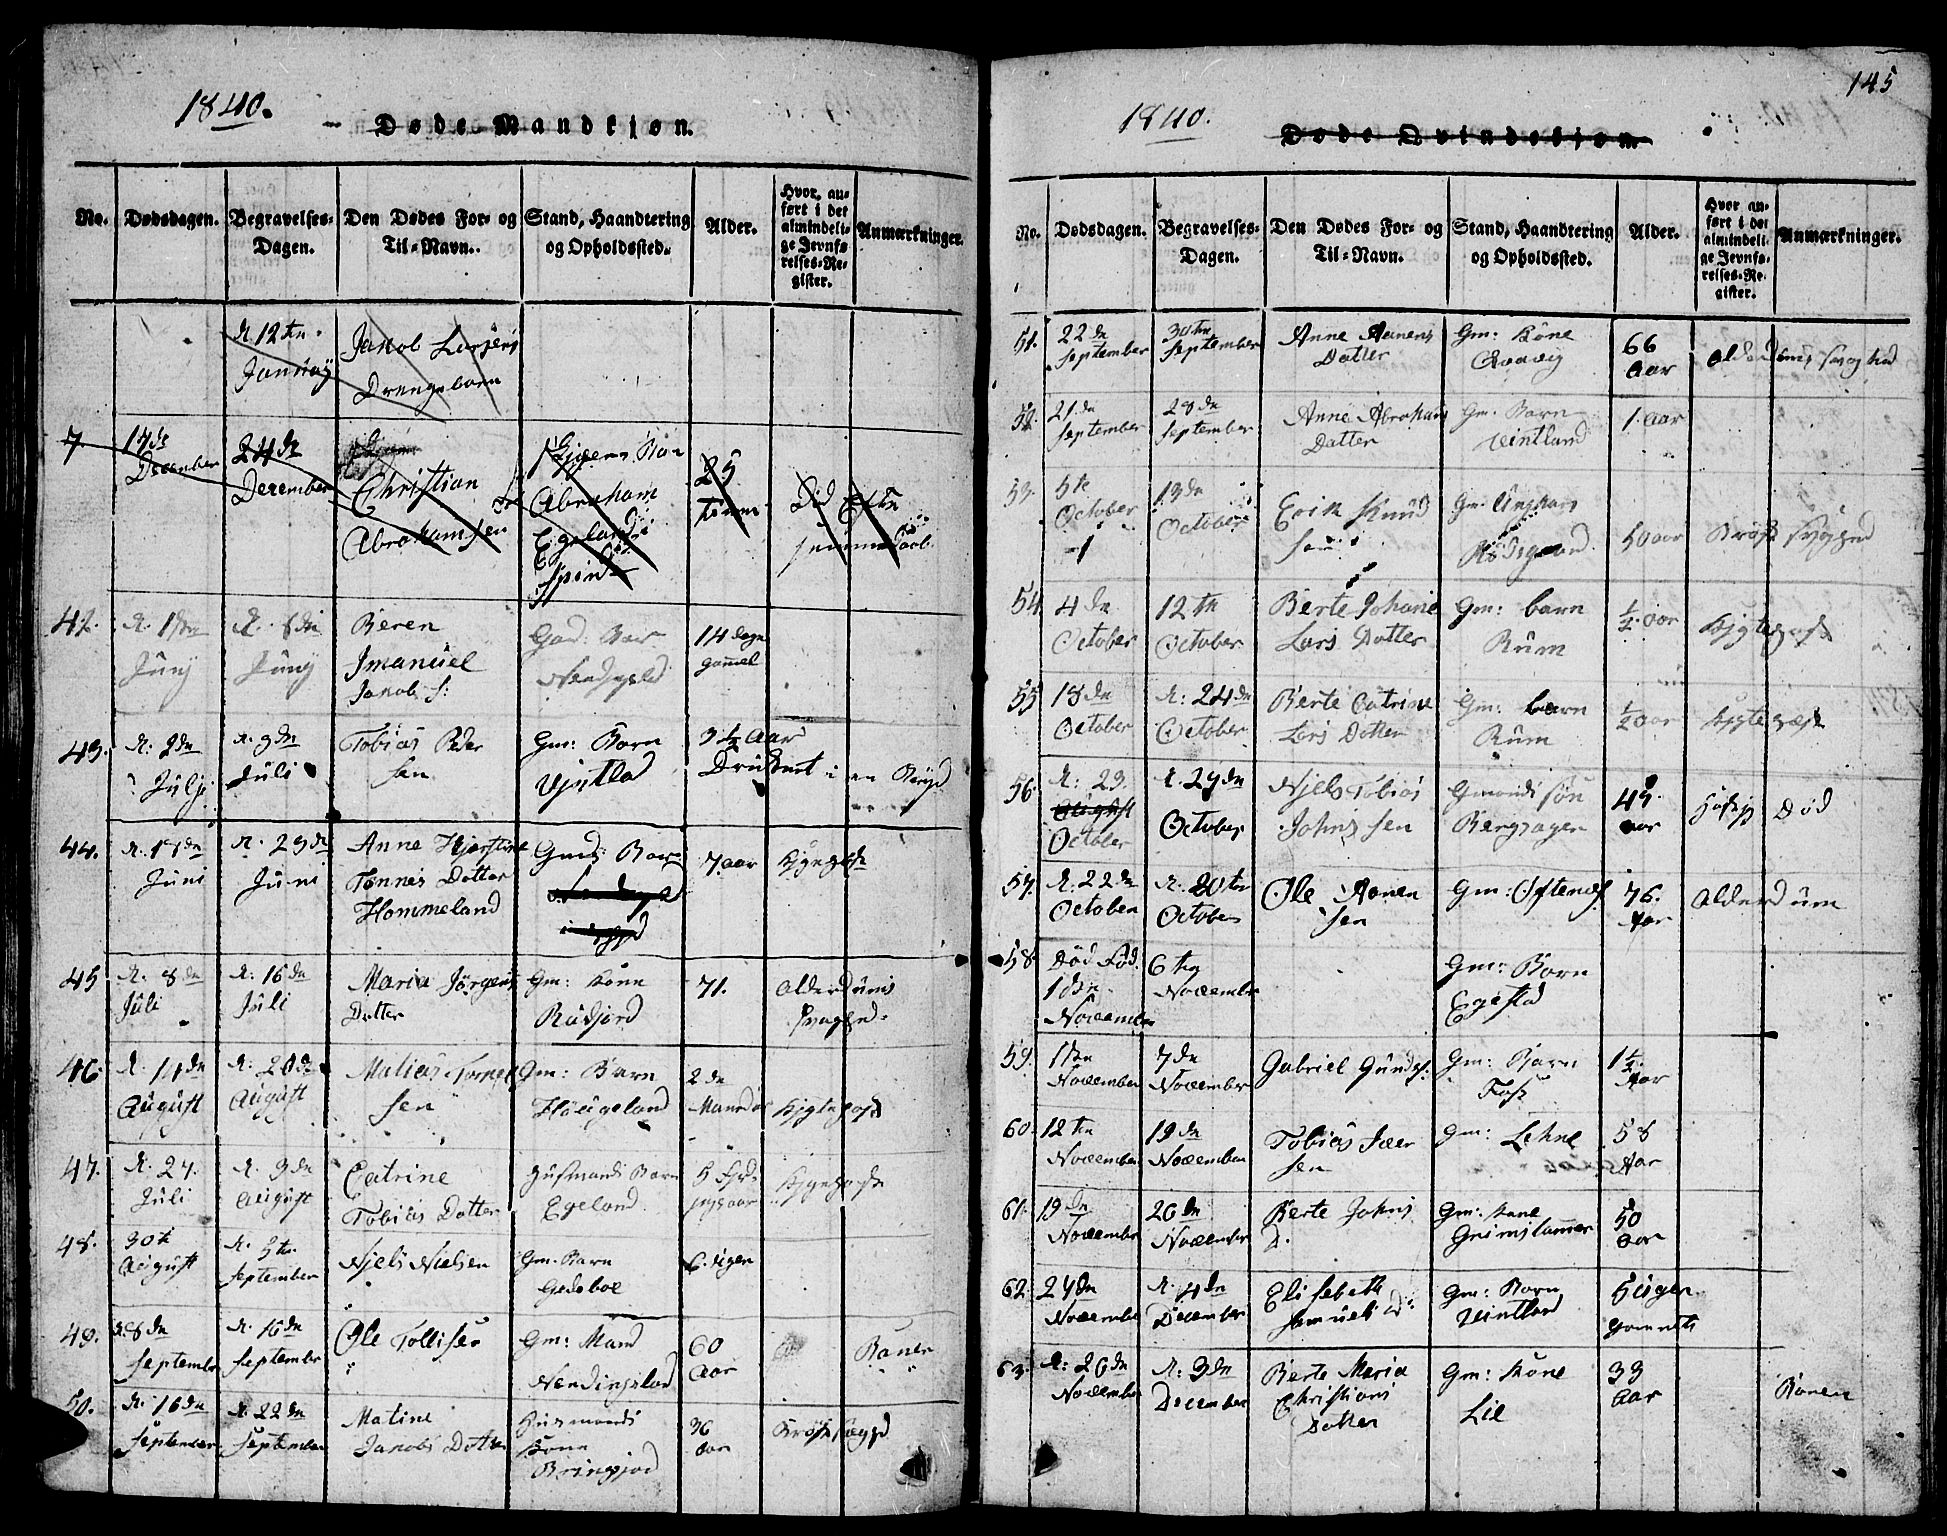 1840.
Døde Mandkjøn.
No. Dødsdagen. Begravelses-Dagen. Den Dødes For- og Til-Navn. Stand, Haandtering og Opholdssted. Alder. Hvor anført i det almindelige Jevnførelses-Register. Anmærkninger.
d. 12te Januay Jakob Larsens Drengebarn
7 17de December 24de December Christian Abrahamsen Abraham Egeland 25 Død
42. d. 1den Junj d. 8di Junj Beren Imanuel Jakobs S: 14 dage gamel
43. d. 2dn Julj d. 9dn Juli Tobias Peder sen Gm: Barn Vintlad 3 1/2 Aar Druknet i en
44. d. 17dn Juni d. 23de Juni Anne Tønnes Dotter Hommeland 7 aar
45 d. 8dn Juli d. 16dn Juli Maria Jørgens Dotter Gm: Kone Rudjord 71. Alderdums svaghed
46 d. 14dn August d. 20dn August Matias Tørres sen Gm: Barn Høugeland 2 dn
47. d. 27. Juli d. 3dn August Catrine Tobias Dotter Husmands Barn Egeland 5
48. 30te August d. 5te September Njels Nielsen Gm. Barn Gedeboe 6. Uger
49. d. 8dn September d. 16dn September Ole Tollisen Gm: Mand 60 Aar
50. d. 16dn September d. 22dn September Matine Jakobs Dotter Husmands Kone Bringsjord 36 Aar
145
1840.
Døde Qvindekjøn
No. Dødsdagen. Begravelses-Dagen. Den Dødes For- og Til-Navn. Stand, Haandtering og Opholdssted. Alder. Hvor anført i det almindelige Jevnførelses-Register. Anmærkninger.
51. 22dn September 30te September Anne Aanens Datter Gm: Kone 66 Aar Alderdums svaghed
52 21dn September 28dn September Anne Abrahams Datter Gm: Barn Vintland 1. Aar
53. 5te October 13dn October Erik Knud sen 50 aar
54. 4dn October 12te October Berte Johanne Lars Dotter Gm: barn Rum 1/2 Aar
55 18dn October d: 24dn October Berte Catrine Lars Dotter Gm: barn Rum 1/2 aar
56. d: 23. August October d. 29dn October Njels Tobias Johns sen Gmands søn Bergsager 45. Aar Død
57. d: 22dn October d. 20te October Ole Aanen sen Gm: Øftenes 76. Aar Alderdum
58 Død Fød 1den November 6te November Gm: Barn Egestad
59. 1den November 7dn November Gabriel Gunds. Gm: Barn Foss 1 1/2 Aar
60. 12te November 19dn November Tobias Iver sen Gm: Lehne 58 Aar
61. 19dn November 26dn November Berte Johns D. Gm: Kone 50 Aar
62. 27dn November d: 4dn December Elisabeth Samuels D: Gm: Barn Vintland 5 Uger
63. d: 26dn November d. 3dn December Berte Maria Christians Dotter Gm: Kone Lie 33 Aar